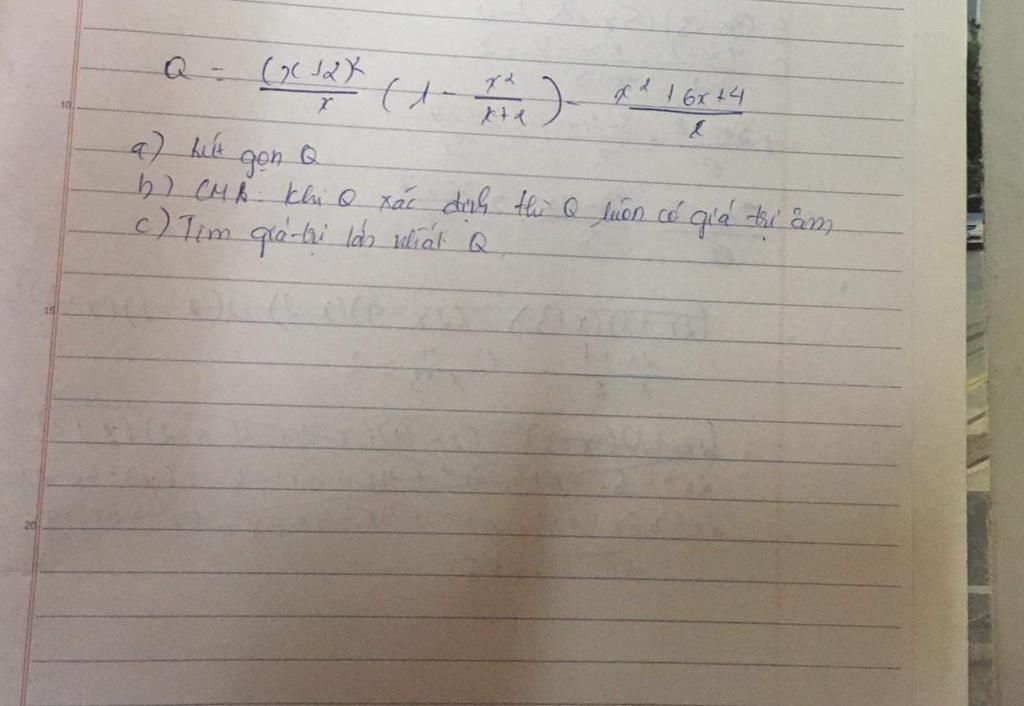 Q = (x+2)²/x (1 - x²/x+2) - x² + 6x + 4/x
10
a) Rút gọn Q
b) CMR: khi Q xác định thì Q luôn có giá trị âm
c) Tìm giá trị lớn nhất Q
15
20